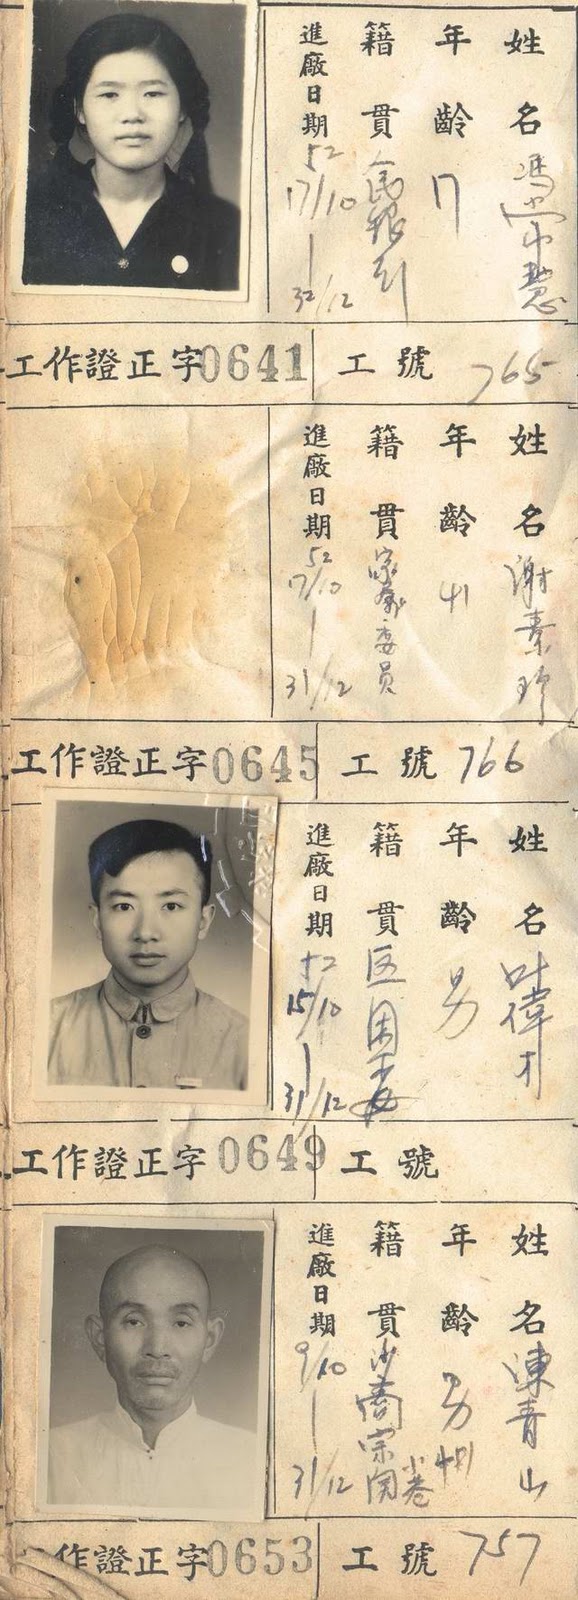 姓名
年齡 17
籍貫
進廠日期 52 17/10 — 32/12
工作證正字0641 工號 765
姓名 謝素珍
年齡 41
籍貫 家屬委員
進廠日期 52 17/10 — 31/12
工作證正字0645 工號 766
姓名 叶偉才
年齡 男
籍貫
進廠日期 52 15/10 — 31/12
工作證正字0649 工號
姓名 陳青山
年齡 男
籍貫
進廠日期 9/10 — 31/12
作證正字0653 工號 757